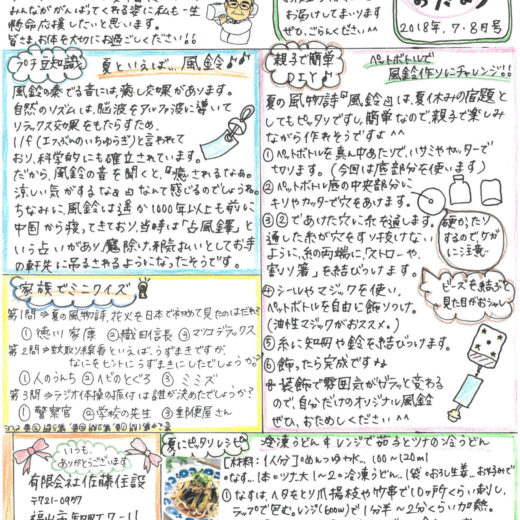 みんながんばってくれる姿に私も一生
懸命応援したいと思います。
皆さまお体を大切にお過ごしください!!
お届けしてまいります
ぜひ、ごらんください
おたより
2018年.7・8月号
プチ豆知識
夏といえば…風鈴♪♪
風鈴の奏でる音には、癒し効果があります。
自然のリズムは、脳波をアルファ波に導いて
リラックス効果をもたらすため、
1/f(エフぶんのいちゆらぎ)と言われて
おり、科学的にも確立されています。
だから、風鈴の音を聞くと、『癒されるなぁ。
涼しい気がするなぁ』なんて感じるのでしょうね。
ちなみに、風鈴は遥か1000年以上も前に
中国から渡ってきており、当時は『占風鐸』
という占いがあり、魔除け、邪気払いとしてお寺
の軒先に吊るされるようになったそうです。
親子で簡単
DIY♪
ペットボトルで
風鈴作りにチャレンジ!!
夏の風物詩『風鈴』は、夏休みの宿題と
してもピッタリですし、簡単なので、親子で楽しみ
ながら作れそうですよ^^
①ペットボトルを真ん中あたりで、ハサミやカッターで
切ります。(今回は底部分を使います)
②ペットボトル底の中央部分に
キリやカッターで穴をあけます。
③②であけた穴に糸を通します。
通した糸が穴をすり抜けない
ように、糸の両端に、ストローや、
割り箸を結びつけます。
硬かったり
するのでケガ
に注意…
④シールやマジックを使い、
ペットボトルを自由に飾りつけ。
(油性マジックがおススメ。)
ビーズを結ぶと
見た目がおシャレ
⑤糸に短冊や鈴を結びつけます。
⑥飾ったら完成ですね
装飾で雰囲気がガラッと変わる
ので、自分だけのオリジナル風鈴
ぜひ、おためしください^^
家族でミニクイズ
第1問⇒夏の風物詩、花火を日本で初めて見たのはだれ?
①徳川家康 ②織田信長 ③マツコデラックス
第2問⇒蚊取り線香といえば、うずまきですが、
なにをヒントにうずまきにしたでしょうか。
①人のうんち ②へびのとぐろ ③ミミズ
第3問⇒ラジオ体操の振付は誰が決めたでしょうか?
①警察官 ②学校の先生 ③郵便屋さん
いつも、
ありがとうございます
有限会社佐藤住設
〒721-0957
夏にピッタリレシピ
冷凍うどん&レンジで茄子とツナの冷うどん
[材料:(1人分)]○めんつゆ+水…100〜120ml
○なす…1本○ツナ缶1〜2○冷凍うどん…1袋○おろし生姜…お好みで
①なすは、ヘタをとり爪楊枝や竹串で10ヶ所くらい刺し、
ラップで包む。レンジ(600W)で1分半〜2分くらい加熱。